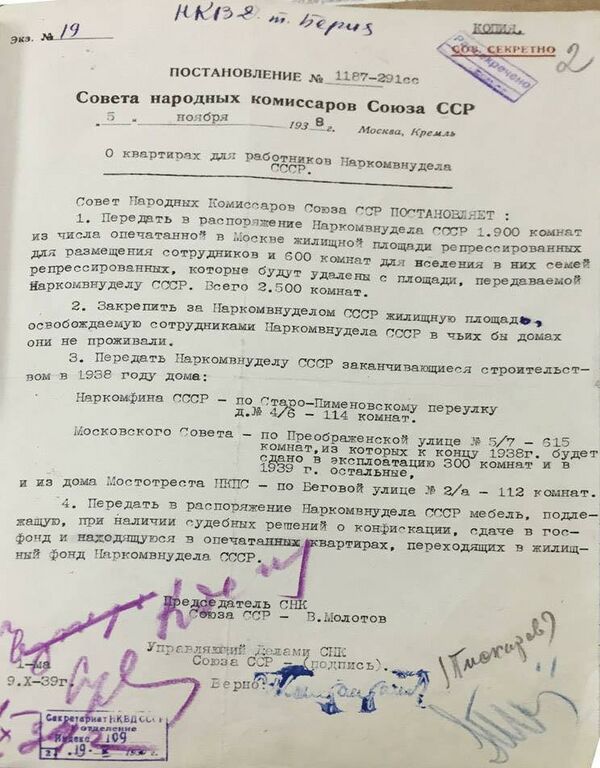 НКВД т. Берия
Экз. № 19
КОПИЯ.
СОВ. СЕКРЕТНО
Рассекречено
2
ПОСТАНОВЛЕНИЕ № 1187-291сс
Совета народных комиссаров Союза ССР
„ 5 „ ноября 1938 г. Москва, Кремль
О квартирах для работников Наркомвнудела
СССР.
Совет Народных Комиссаров Союза ССР ПОСТАНОВЛЯЕТ :
1. Передать в распоряжение Наркомвнудела СССР 1.900 комнат
из числа опечатанной в Москве жилищной площади репрессированных
для размещения сотрудников и 600 комнат для вселения в них семей
репрессированных, которые будут удалены с площади, передаваемой
Наркомвнуделу СССР. Всего 2.500 комнат.
2. Закрепить за Наркомвнуделом СССР жилищную площадь,
освобождаемую сотрудниками Наркомвнудела СССР в чьих бы домах
они не проживали.
3. Передать Наркомвнуделу СССР заканчивающиеся строительст-
вом в 1938 году дома:
Наркомфина СССР - по Старо-Пименовскому переулку
д.№ 4/6 - 114 комнат.
Московского Совета - по Преображенской улице № 5/7 - 615
комнат,из которых к концу 1938г. будет
сдано в эксплоатацию 300 комнат и в
1939 г. остальные,
и из дома Мостотреста НКПС - по Беговой улице № 2/а - 112 комнат.
4. Передать в распоряжение Наркомвнудела СССР мебель, подле-
жащую, при наличии судебных решений о конфискации, сдаче в гос-
фонд и находящуюся в опечатанных квартирах, переходящих в жилищ-
ный фонд Наркомвнудела СССР.
Председатель СНК
Союза ССР - В.Молотов
Управляющий Делами СНК
Союза ССР - (подпись).
1-ма
9.X-39г.
Верно:
(Пискарев)
Секретариат НКВД СССР
отделение
Индекс 109